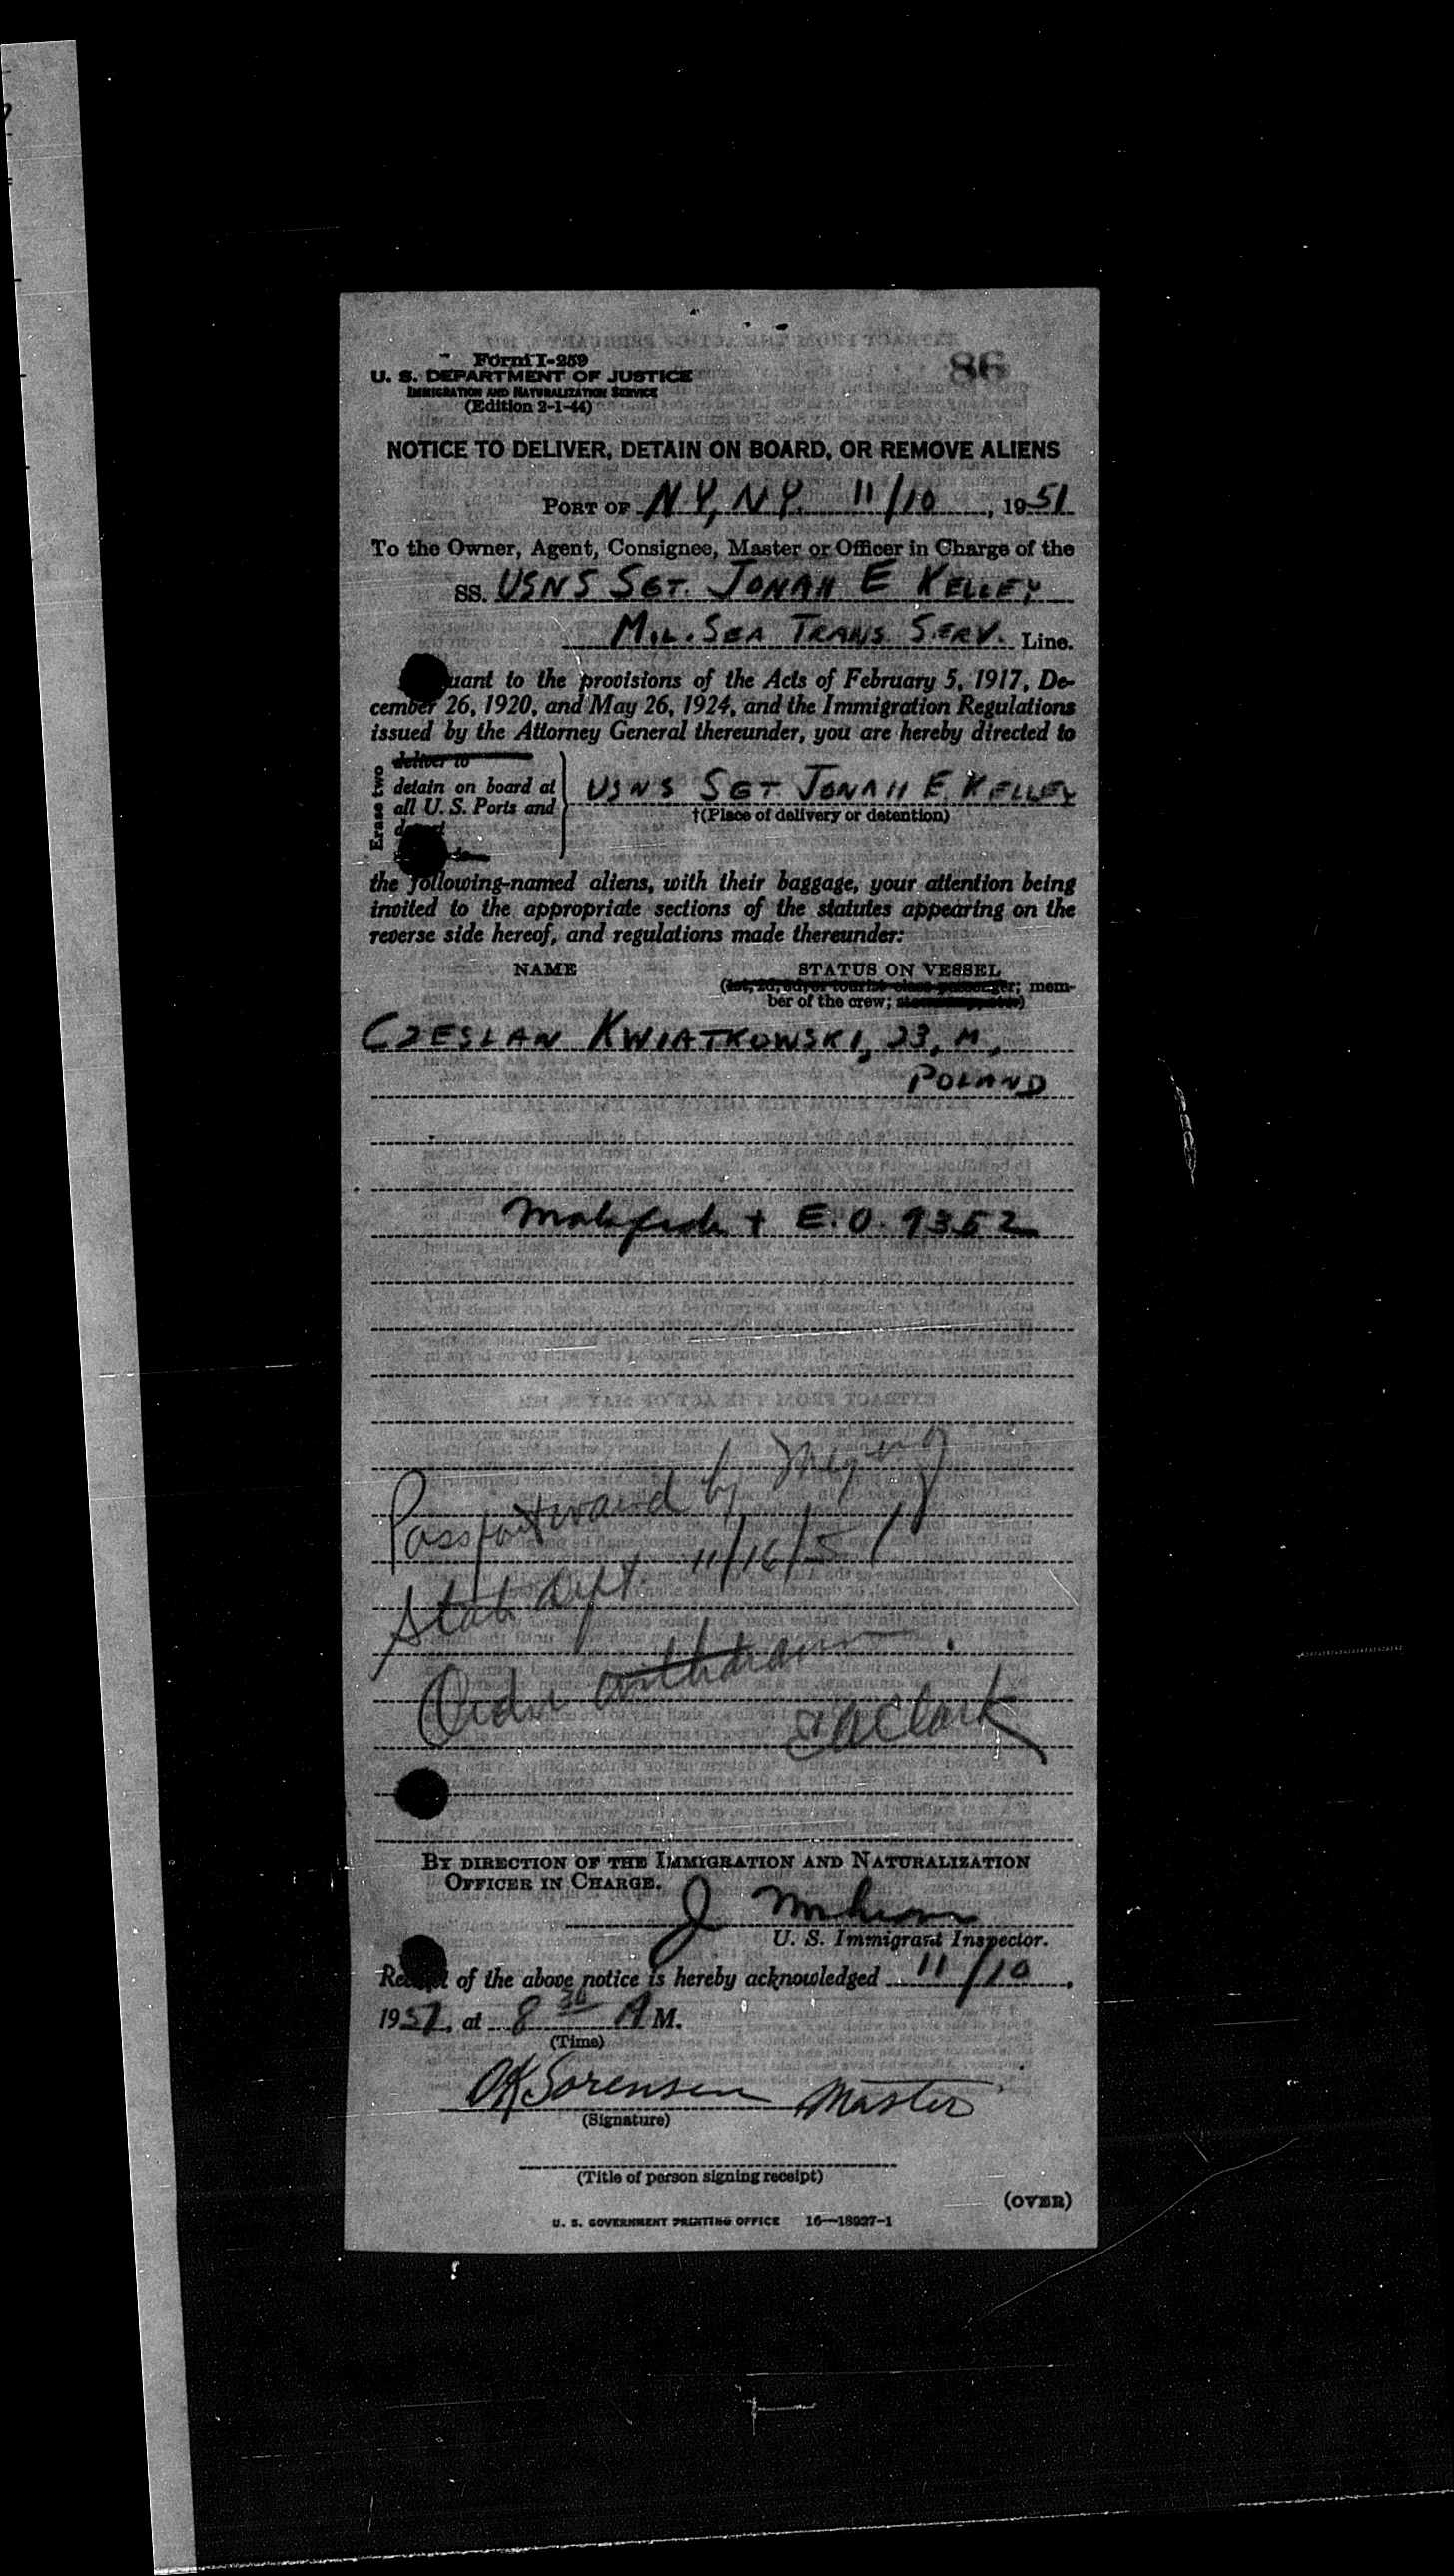 Form I-259
86
U. S. DEPARTMENT OF JUSTICE
IMMIGRATION AND NATURALIZATION SERVICE
(Edition 2-1-44)
NOTICE TO DELIVER, DETAIN ON BOARD, OR REMOVE ALIENS
PORT OF N Y, N Y. 11/10, 1951
To the Owner, Agent, Consignee, Master or Officer in Charge of the
SS. USNS SGT. JONAH E KELLEY
MIL. SEA TRANS. SERV. Line.
uant to the provisions of the Acts of February 5, 1917, De-
cember 26, 1920, and May 26, 1924, and the Immigration Regulations
issued by the Attorney General thereunder, you are hereby directed to
Erase two
deliver to
detain on board at
all U. S. Ports and
USNS SGT JONAH E. KELLEY
†(Place of delivery or detention)
the following-named aliens, with their baggage, your attention being
invited to the appropriate sections of the statutes appearing on the
reverse side hereof, and regulations made thereunder:
NAME STATUS ON VESSEL
(1st, 2d, 3d, or tourist class passenger; mem-
ber of the crew; )
CZESLAN KWIATKOWSKI, 23, M,
POLAND
Malafide + E.O. 9352
Passport waived by
State Dept. 11/16/51
Order withdrawn.
Clark
BY DIRECTION OF THE IMMIGRATION AND NATURALIZATION
OFFICER IN CHARGE.
J
U. S. Immigrant Inspector.
of the above notice is hereby acknowledged 11/10,
1951, at 8 30 A M.
(Time)
OK Sorensen Master
(Signature)
(Title of person signing receipt)
(OVER)
U. S. GOVERNMENT PRINTING OFFICE 16—18927-1